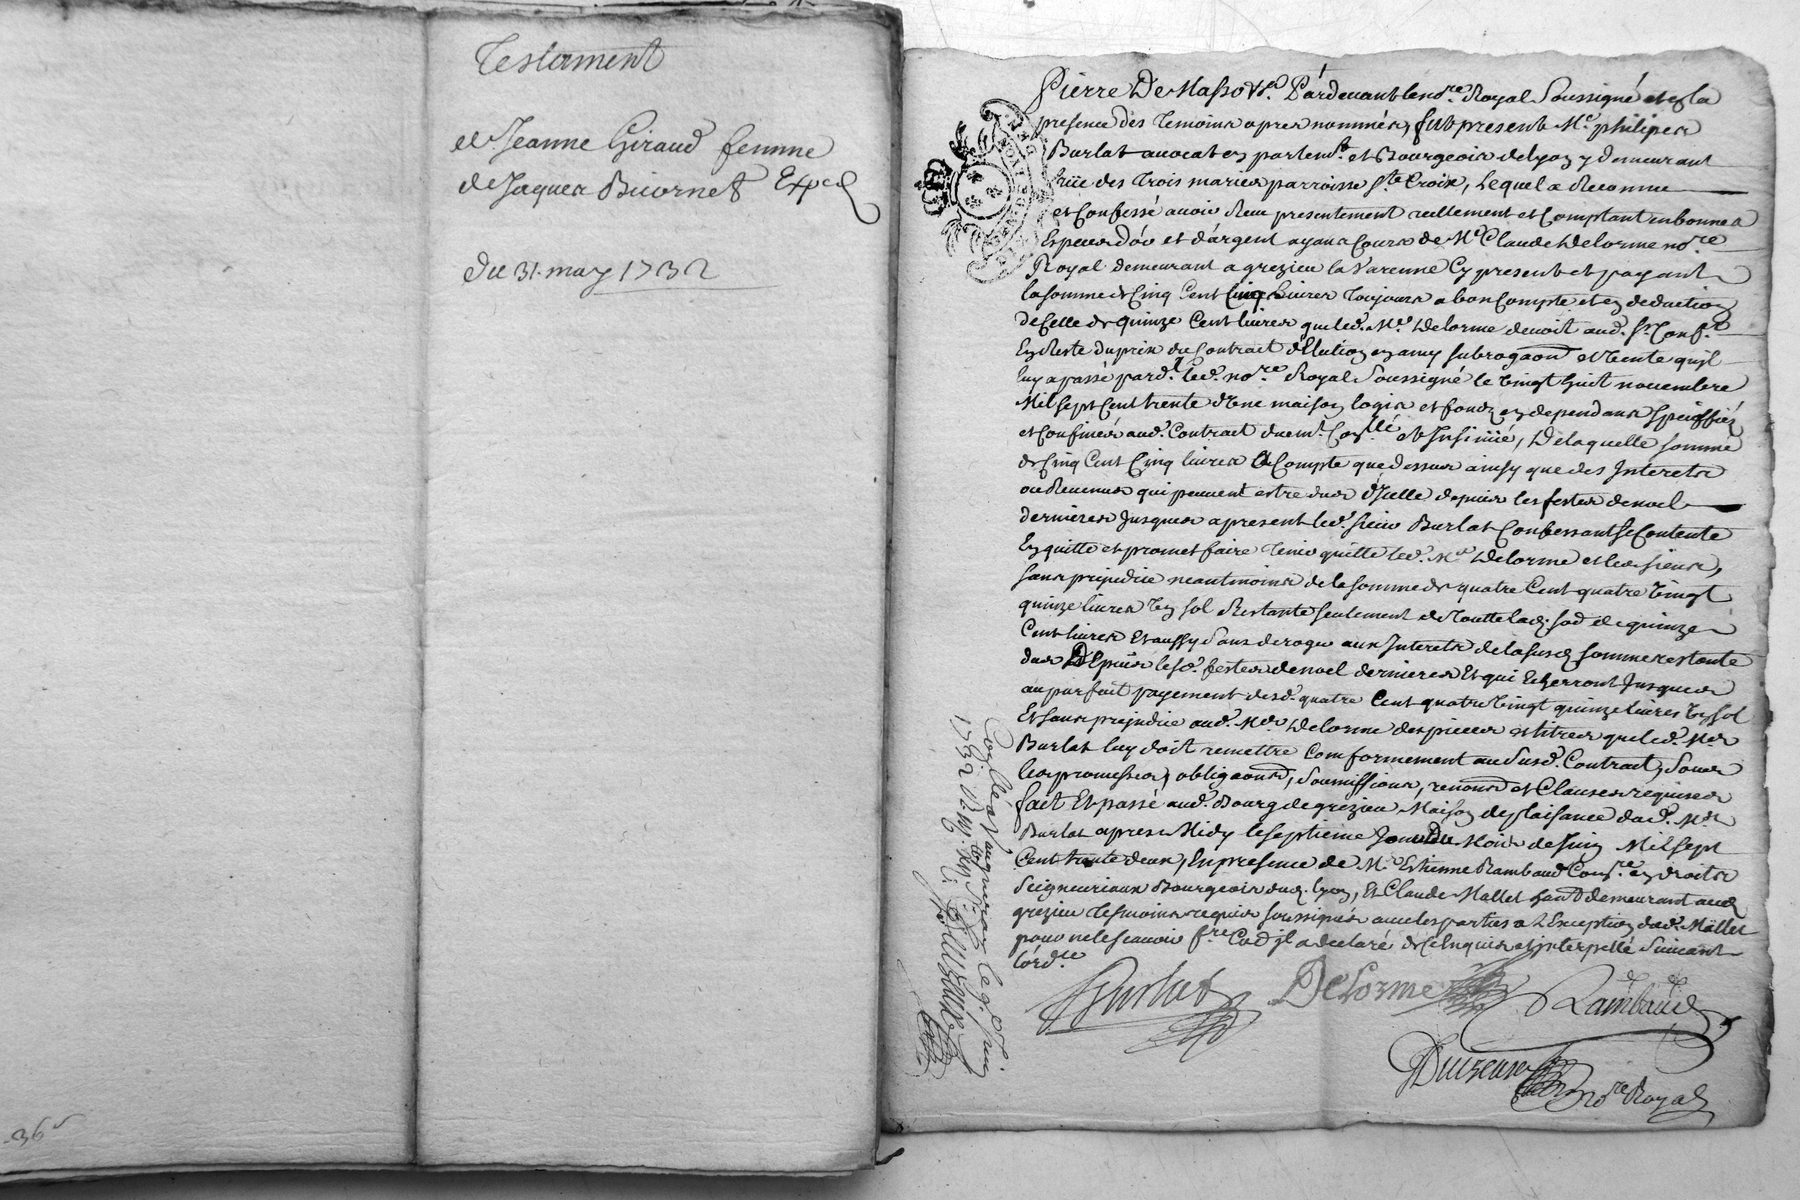 Testament
de Jeanne Giraud femme
de Jaques Bicornet Exp.ed
du 31. may 1732
36
Pierre De Masso &.a Pardevant le no.re Royal Soussigné et en la
presence des temoins apres nommés, fut present M.e philipes
Burlat avocat en parlem.t et Bourgeois de lyon y demeurant
rüe des trois maries parroisse S.te Croix, Lequel a Reconnu
et Confessé avoir Reçu presentement reellement et Comptant en bonnes
Especes d'or et d'argent ayans Cours de M.e Claude Delorme no.re
Royal demeurant a grezieu la Varenne Cy present et payant
la somme de Cinq Cent Cinq Livres toujours a bon compte et en deduction
de Celle de quinze Cent livres que led. M.e Delorme devoit aud. S.r
En Reste du prix du Contrat subrogaon et Vente quil
luy a passé pard.t led. no.re Royal Soussigné le Vingt huit novembre
Mil sept Cent trente d'Une maison logis et fonds en dependans speciffiés
et Confinés aud. Contrat duem.t Con.llé et Insinüé, De laquelle somme
de Cinq Cent Cinq livres a Compte que dessus ainsy que des Interets
ou Revenus qui peuvent estre dus d'Icelle depuis les festes de noel
dernieres Jusques a present led. sieur Burlat Confessant se Contente
En quitte et promet faire tenir quitte led. M.e Delorme et les siens,
sans prejudice neantmoins de la somme de quatre Cent quatre Vingt
quinze livres Un sol Restante seulement de toutte lad. sod. de quinze
Cent livres Et aussy Sans deroger aux Interets de la susd. somme restante
dus Depuis lesd. festes de noel dernieres Et qui Echerront Jusques
au parfait payement desd. quatre Cent quatre Vingt quinze livres Un sol
Et sans prejudice aud. M.e Delorme des pieces et titres que led. M.e
Burlat luy doit remettre Comformement au Susd. Contrat, Sous
les promesses, obligaons, Soumissions, renons et Clauses requises
fait Et passé aud. Bourg de grezieu Maison de plaisance dud. M.e
Burlat apres Midy le septieme Jour Du Mois de Juin Mil sept
Cent trente deux, En presence de M.e Estienne Rambaud Con.re en droits
Seigneuriaux Bourgeois dud. lyon, Et Claude Mallet demeurant aud.
grezieu temoins requis soussignés avec les parties a L'Exception dud. Mallet
pour ne le scavoir f.re Co.d il a declaré de ce Enquis et interpellé Suivant
lord.ce
Burlat Delorme Rambaud
no.re Royal
Con.llé a Vaugneray le 9. Juin
1732